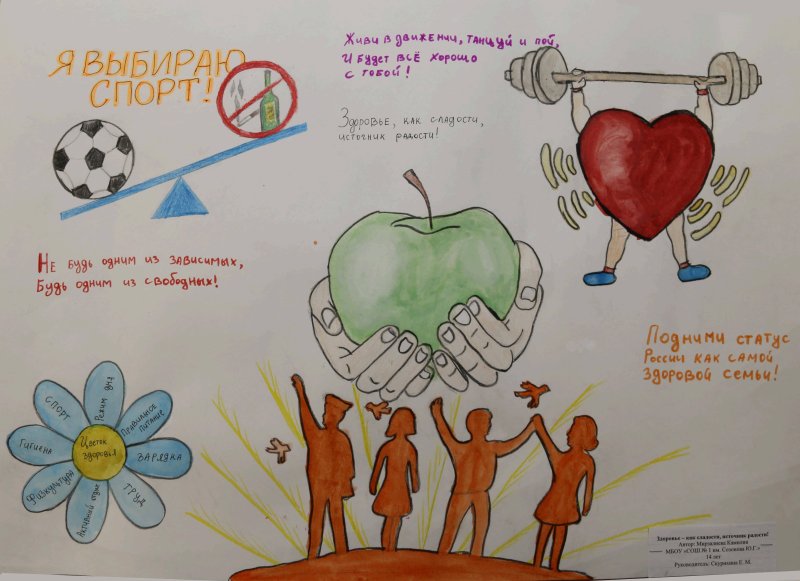 Я ВЫБИРАЮ
СПОРТ!
Живи в движении, танцуй и пой,
И будет всё хорошо
с тобой!
Здоровье, как сладости,
источник радости!
Не будь одним из зависимых,
Будь одним из свободных!
Подними статус
России как самой
здоровой семьи!
Цветок
здоровья
Режим дня
Правильное
питание
ЗАРЯДКА
ТРУД
Активный отдых
Физкультура
Гигиена
СПОРТ
Здоровье – как сладости, источник радости!
Автор: Мирзалиева Камилла
МБОУ «СОШ № 1 им. Созонова Ю.Г.»
14 лет
Руководитель: Скурихина Е. М.